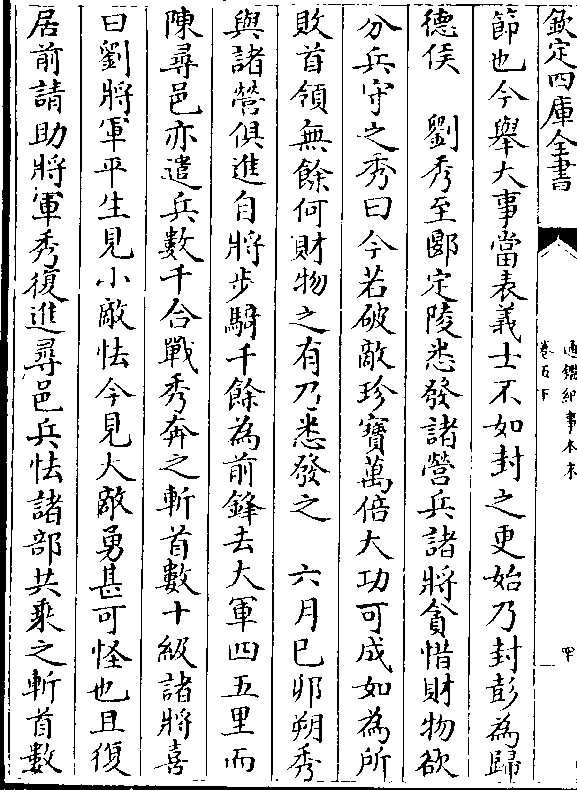 欽定四庫全書
通鑑紀事本末
卷五下
節也今舉大事當表義士不如封之更始乃封彭為歸
德侯　劉秀至郾定陵悉發諸營兵諸將貪惜財物欲
分兵守之秀曰今若破敵珍寶萬倍大功可成如為所
敗首領無餘何財物之有乃悉發之　六月已卯朔秀
與諸營俱進自將步騎千餘為前鋒去大軍四五里而
陳尋邑亦遣兵數千合戰秀奔之斬首數十級諸將喜
曰劉將軍平生見小敵怯今見大敵勇甚可怪也且復
居前請助將軍秀復進尋邑兵怯諸部共乘之斬首數